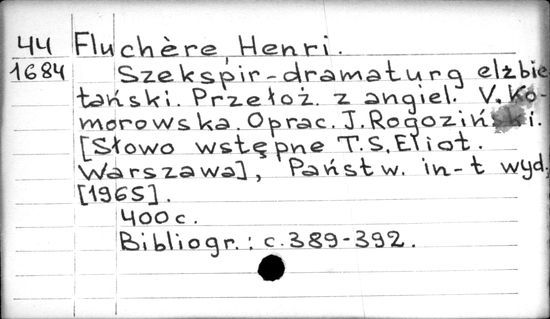 44 Fluchère, Henri.
1684 Szekspir-dramaturg elżbie
tański. Przełoż. z angiel. V. Ko-
morowska. Oprac. J. Rogoziński.
[Słowo wstępne T.S. Eliot.
Warszawa], Państw. in-t wyd,
[1965].
400 c.
Bibliogr.: c. 389-392.